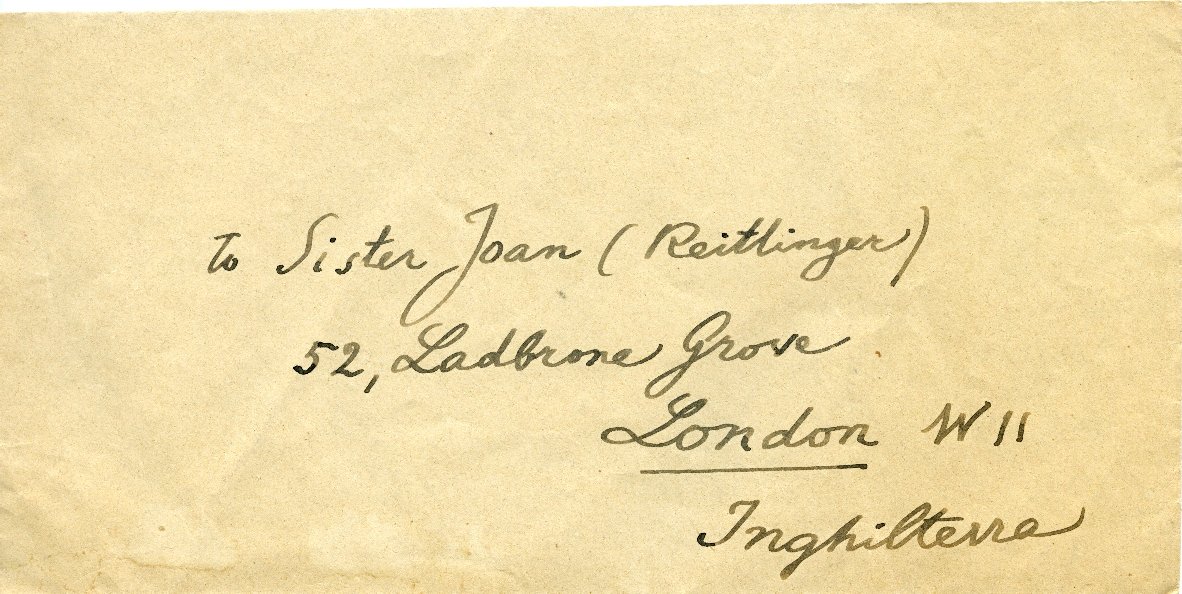 To Sister Joan (Reitlinger)
52, Ladbrone Grove
London W 11
Inghilterra